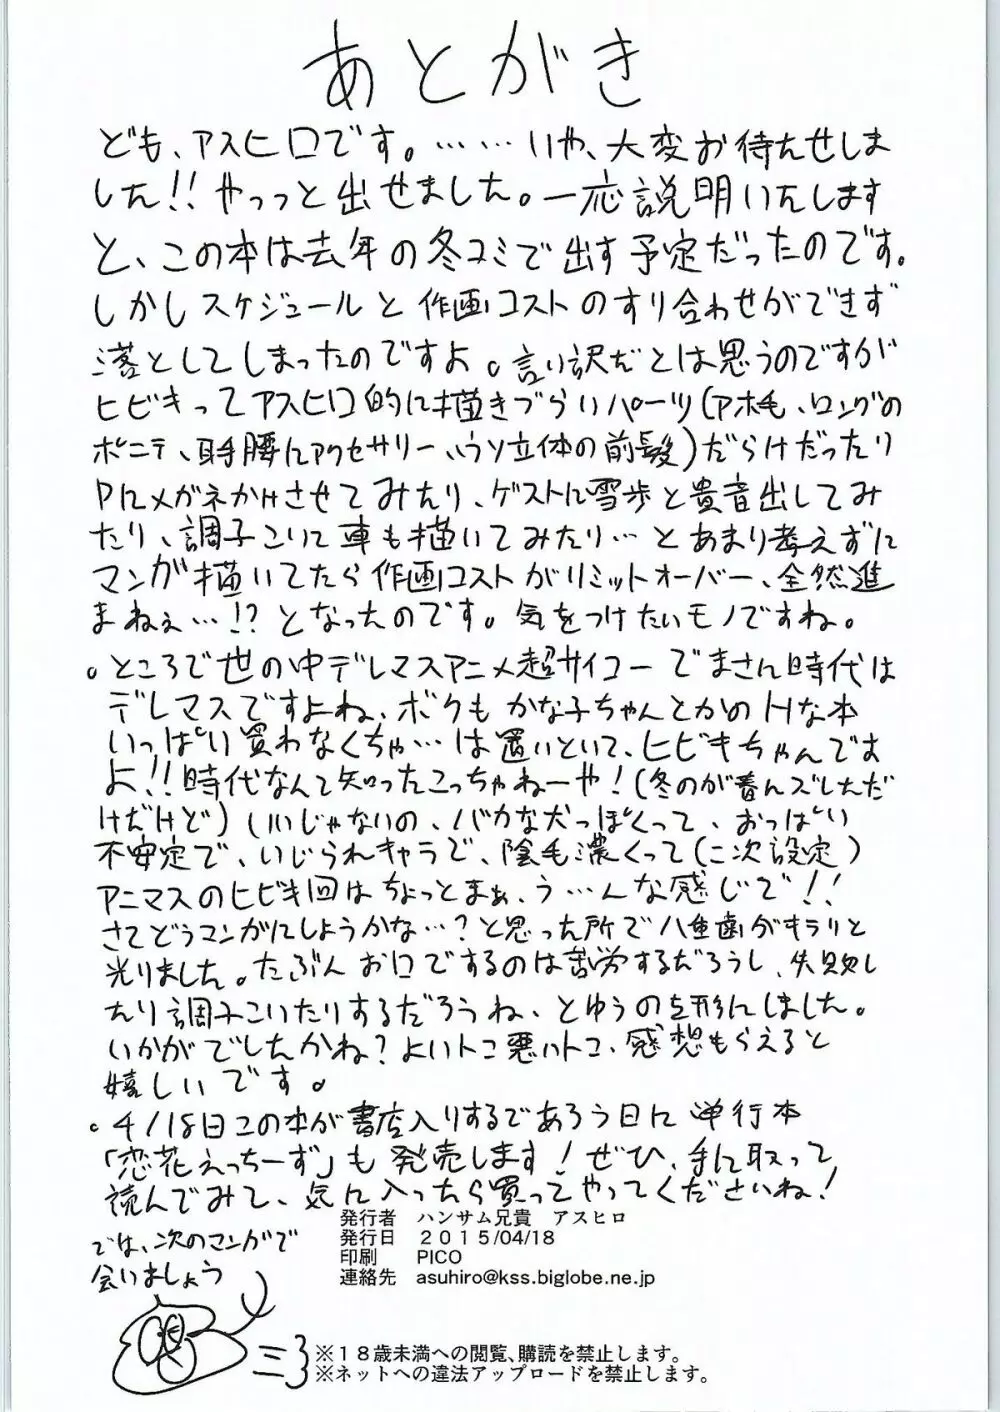 あとがき
ども、アスヒロです。……いや、大変お待たせしま
した!!やっっと出せました。一応説明いたします
と、この本は去年の冬コミで出す予定だったのです。
しかしスケジュールと作画コストのすり合わせができず
落としてしまったのですよ。言い訳だとは思うのですが
ヒビキってアスヒロ的に描きづらいパーツ(アホ毛、ロングの
ポニテ、耳手腰にアクセサリー、ウソ立体の前髪)だらけだったり
Pにメガネかけさせてみたり、ゲストに雪歩と貴音出してみ
たり、調子こいて車も描いてみたり…とあまり考えずに
マンガ描いてたら作画コストがリミットオーバー、全然進
まねぇ…!?となったのです。気をつけたいモノですね。
。ところで世の中デレマスアニメ超サイコーでまさに時代は
デレマスですよね、ボクもかな子ちゃんとかのHな本
いっぱい買わなくちゃ…は置いといて、ヒビキちゃんです
よ!!時代なんて知ったこっちゃねーや!(冬のが着んズレただ
けだけど)いいじゃないの、バカな犬っぽくって、おっぱい
不安定で、いじられキャラで、陰毛濃くって(二次設定)
アニマスのヒビキ回はちょっとまぁ、う…んな感じで!!
さてどうマンガにしようかな…?と思った所で八重歯がキラリと
光りました。たぶんお口でするのは苦労するだろうし、失敗し
たり調子こいたりするだろうね、とゆうのを形にしました。
いかがでしたかね?よいトコ悪いトコ、感想もらえると
嬉しいです。
。4/18日この本が書店入りするであろう日に単行本
「恋花えっちーず」も発売します!ぜひ、手に取って
読んでみて、気に入ったら買ってやってくださいね!
発行者 ハンサム兄貴 アスヒロ
発行日 2015/04/18
印刷 PICO
連絡先 asuhiro@kss.biglobe.ne.jp
では、次のマンガで
会いましょう
※18歳未満への閲覧、購読を禁止します。
※ネットへの違法アップロードを禁止します。